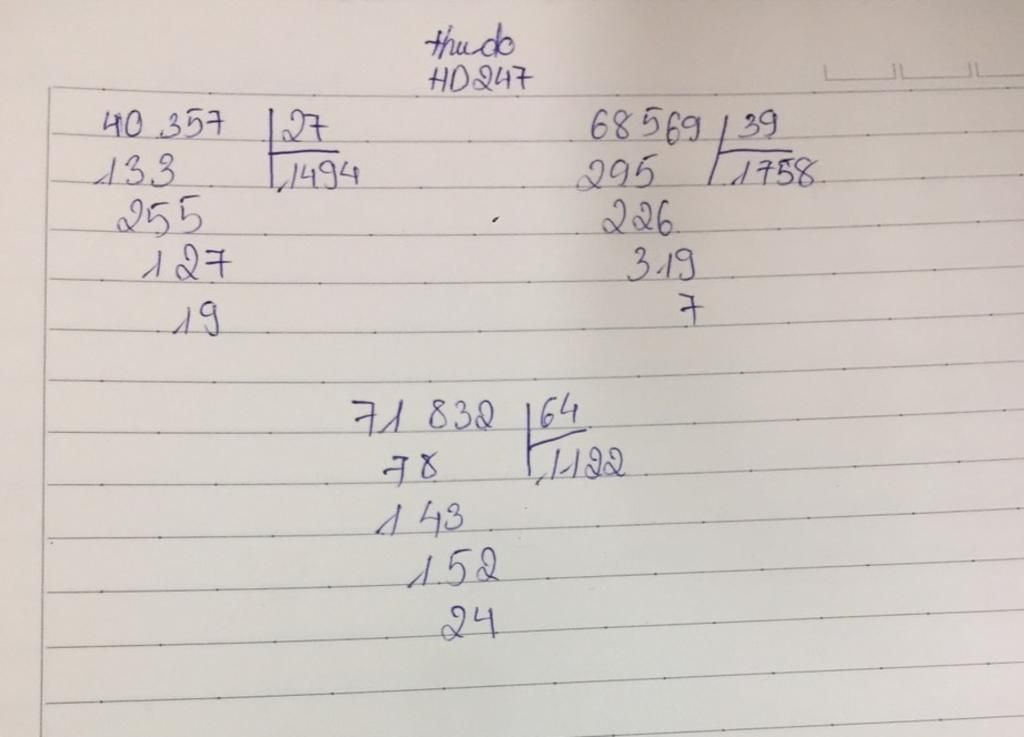 thu do
HD247
40 357 27
133 1494
255
127
19
68569 39
295 1758
226
319
7
71 832 64
78 1122
143
152
24